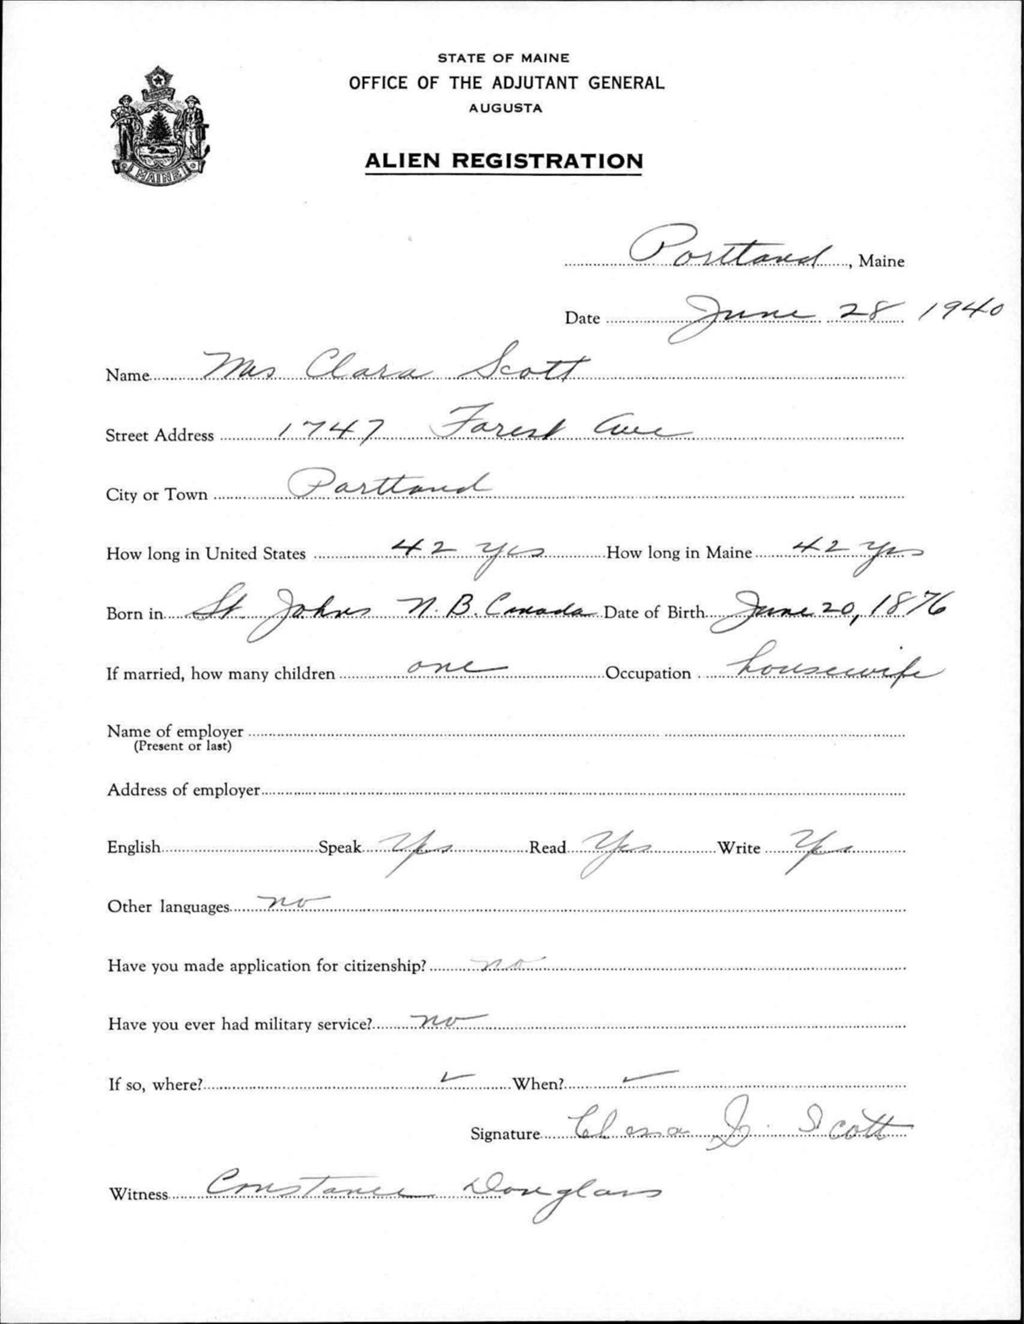 STATE OF MAINE
OFFICE OF THE ADJUTANT GENERAL
AUGUSTA
ALIEN REGISTRATION
MAINE
Portland, Maine
Date June 28 1940
Name Mrs Clara Scott
Street Address 1747 Forest Ave
City or Town Portland
How long in United States 42 yrs How long in Maine 42 yrs
Born in St. Johns N.B. Canada Date of Birth June 20, 1876
If married, how many children one Occupation housewife
Name of employer
(Present or last)
Address of employer
English Speak Yes Read Yes Write Yes
Other languages no
Have you made application for citizenship? no
Have you ever had military service? no
If so, where? ✓ When? ✓
Signature Clara Scott
Witness Constance Douglass